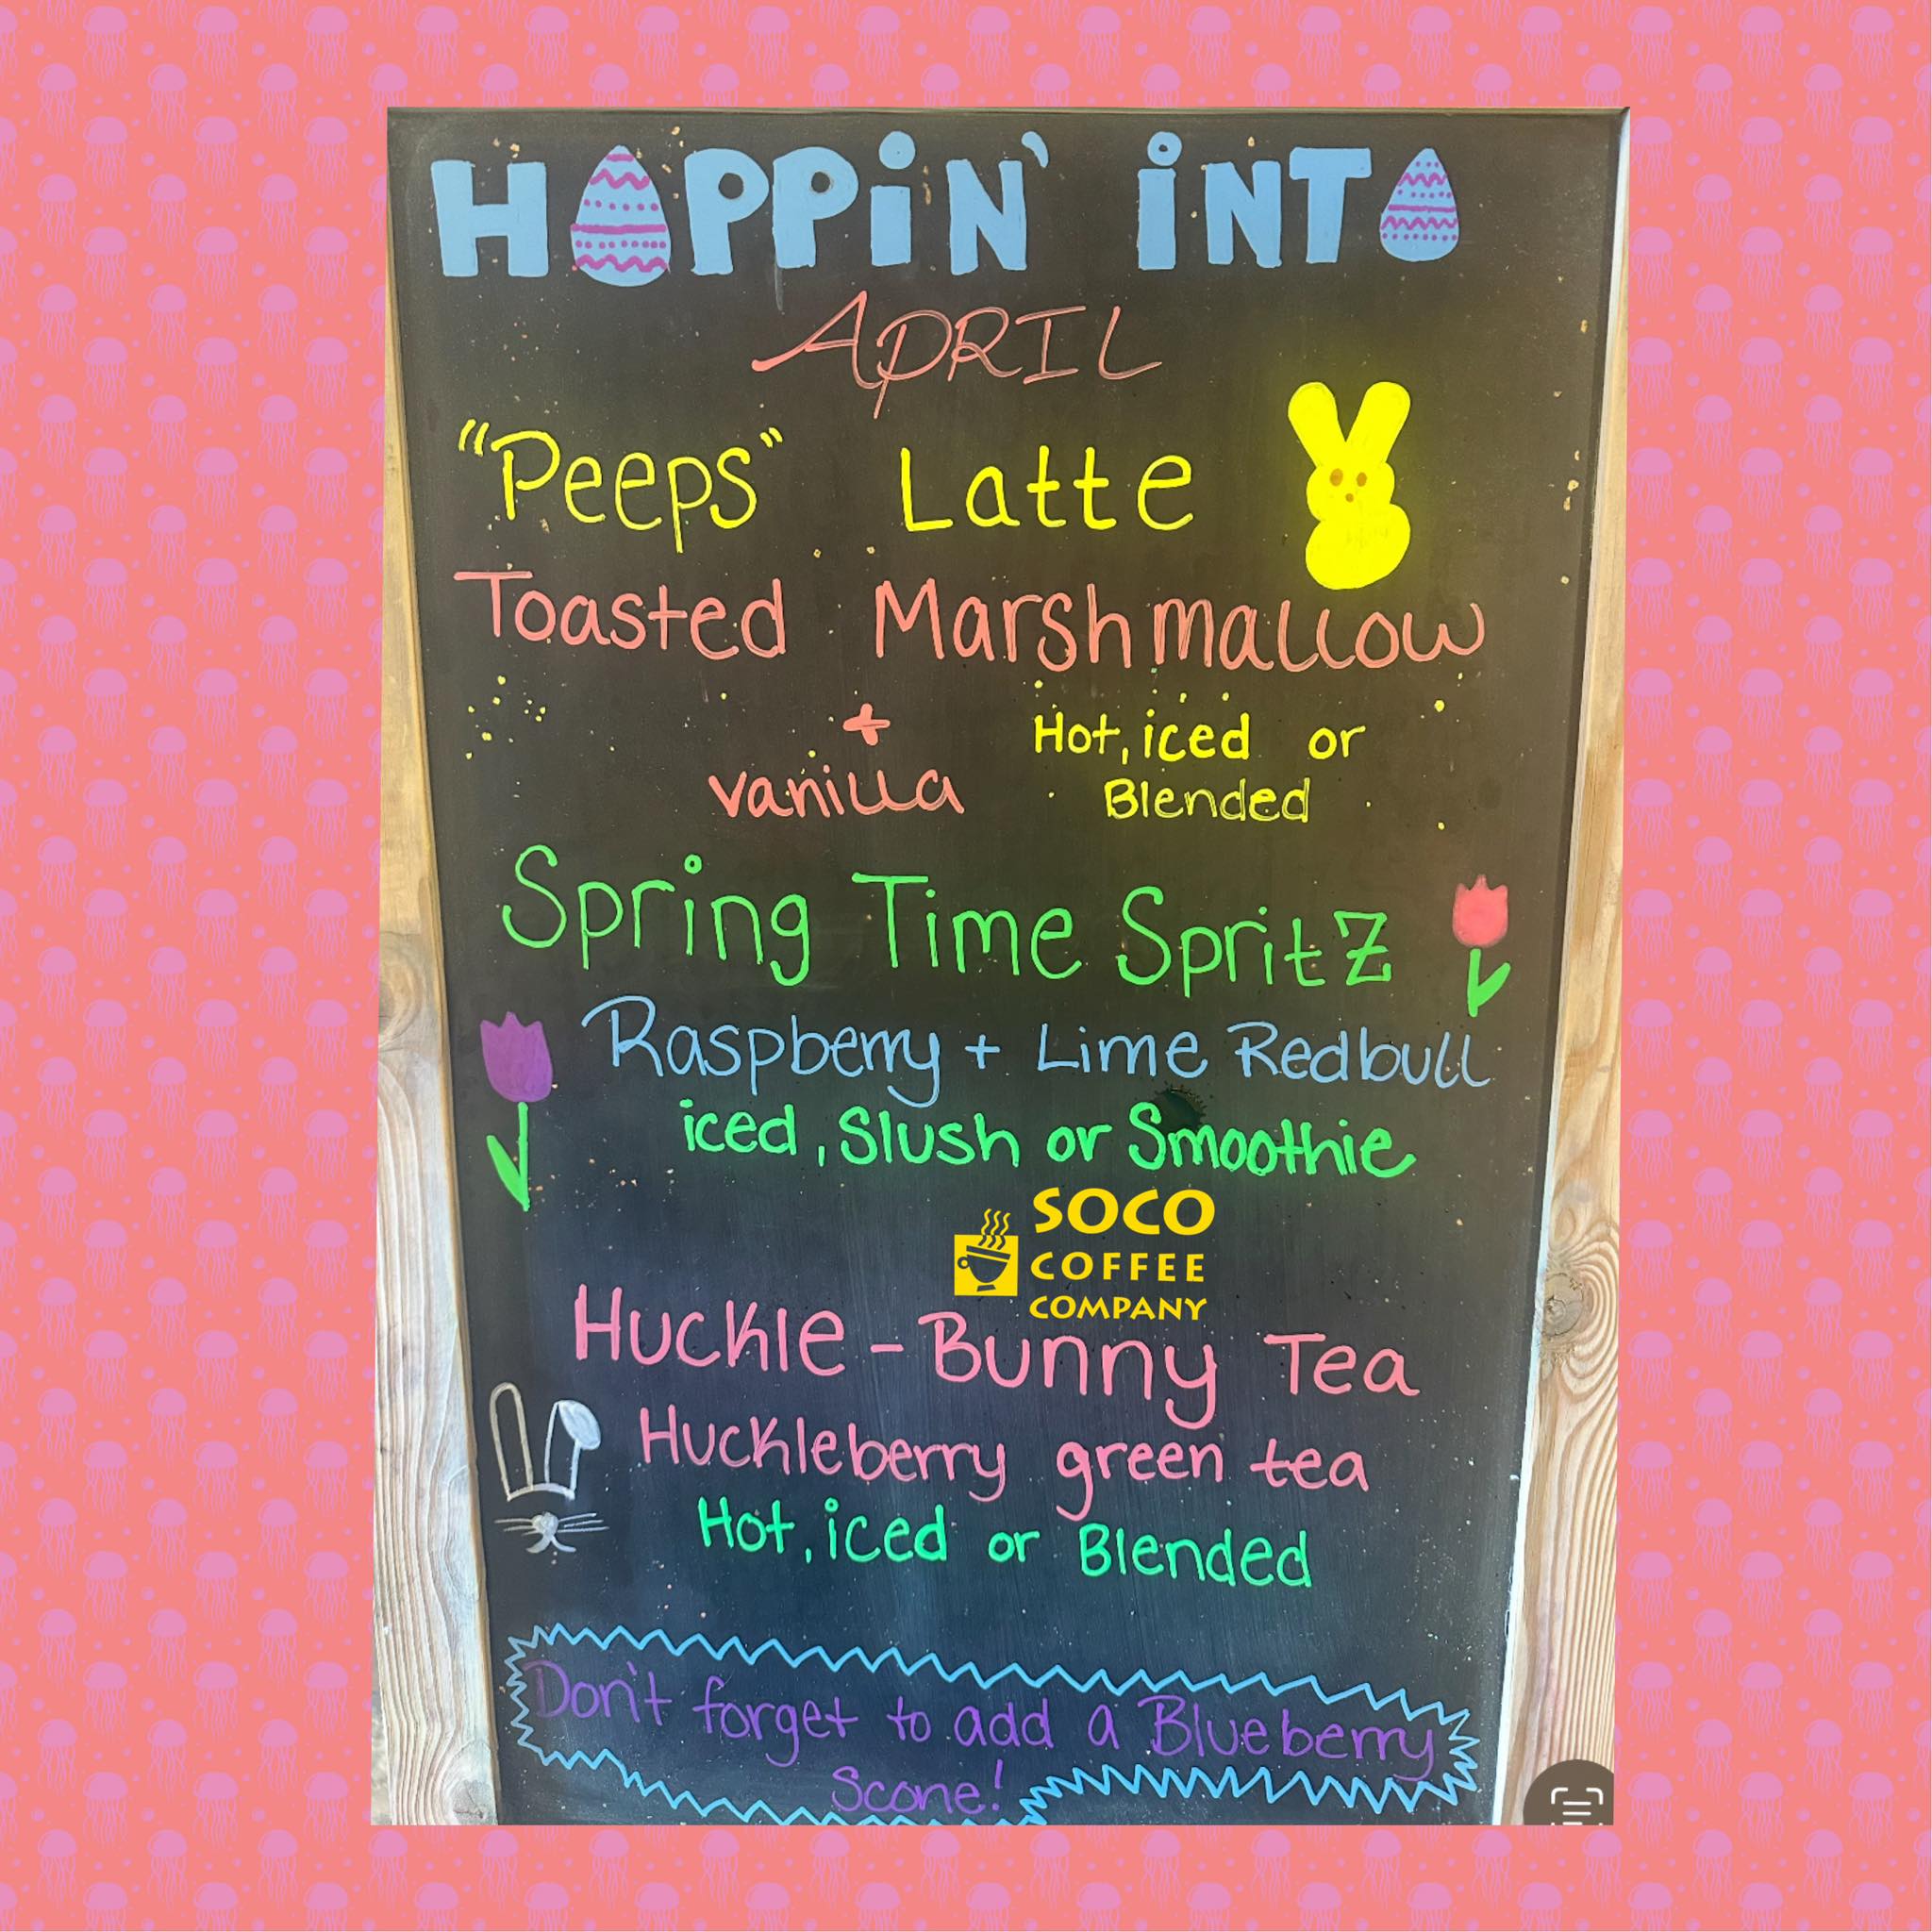 HOPPiN' iNTO
APRIL
"Peeps" Latte
Toasted Marshmallow
+
vanilla
Hot, iced or
Blended
Spring Time Spritz
Raspberry + Lime Redbull
iced, Slush or Smoothie
SOCO
COFFEE
COMPANY
Huckle - Bunny Tea
Huckleberry green tea
Hot, iced or Blended
Don't forget to add a Blueberry
Scone!